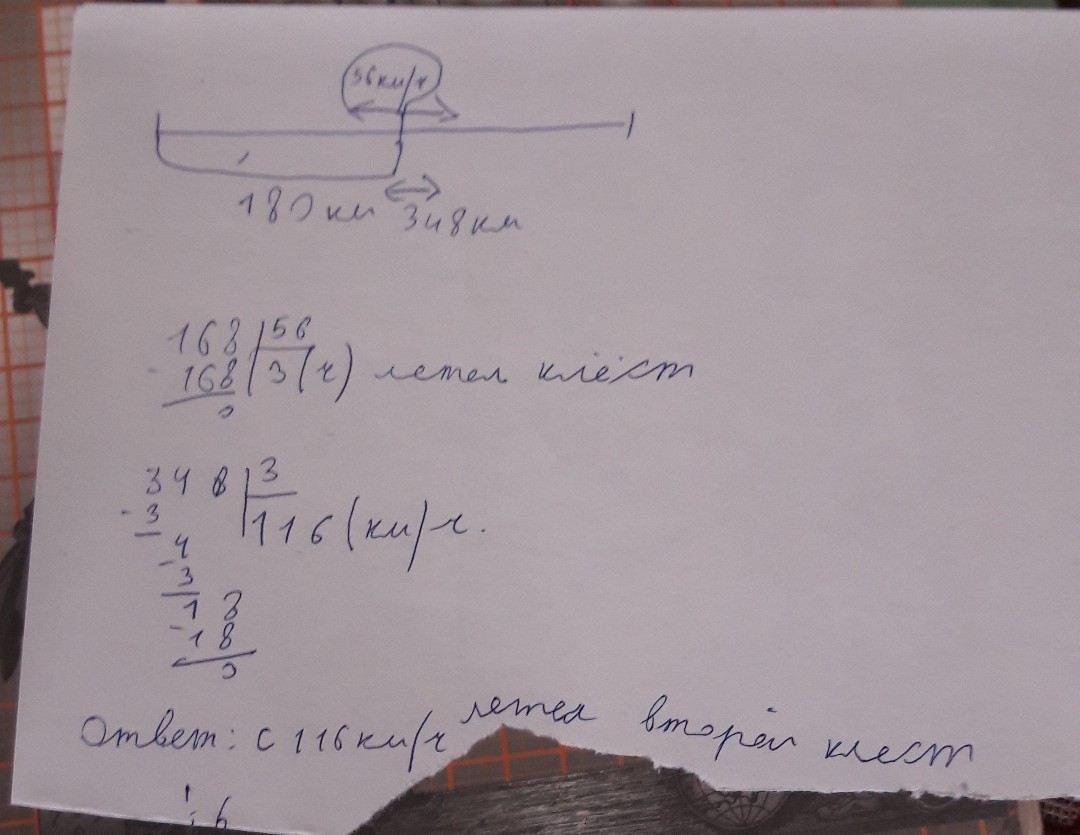 56 км/ч
180 км 348 км
168 56
168 3 (ч) летел клёст
0
348 3
3 116 (км)ч.
4
3
18
18
0
Ответ: с 116 км/ч летел второй клест